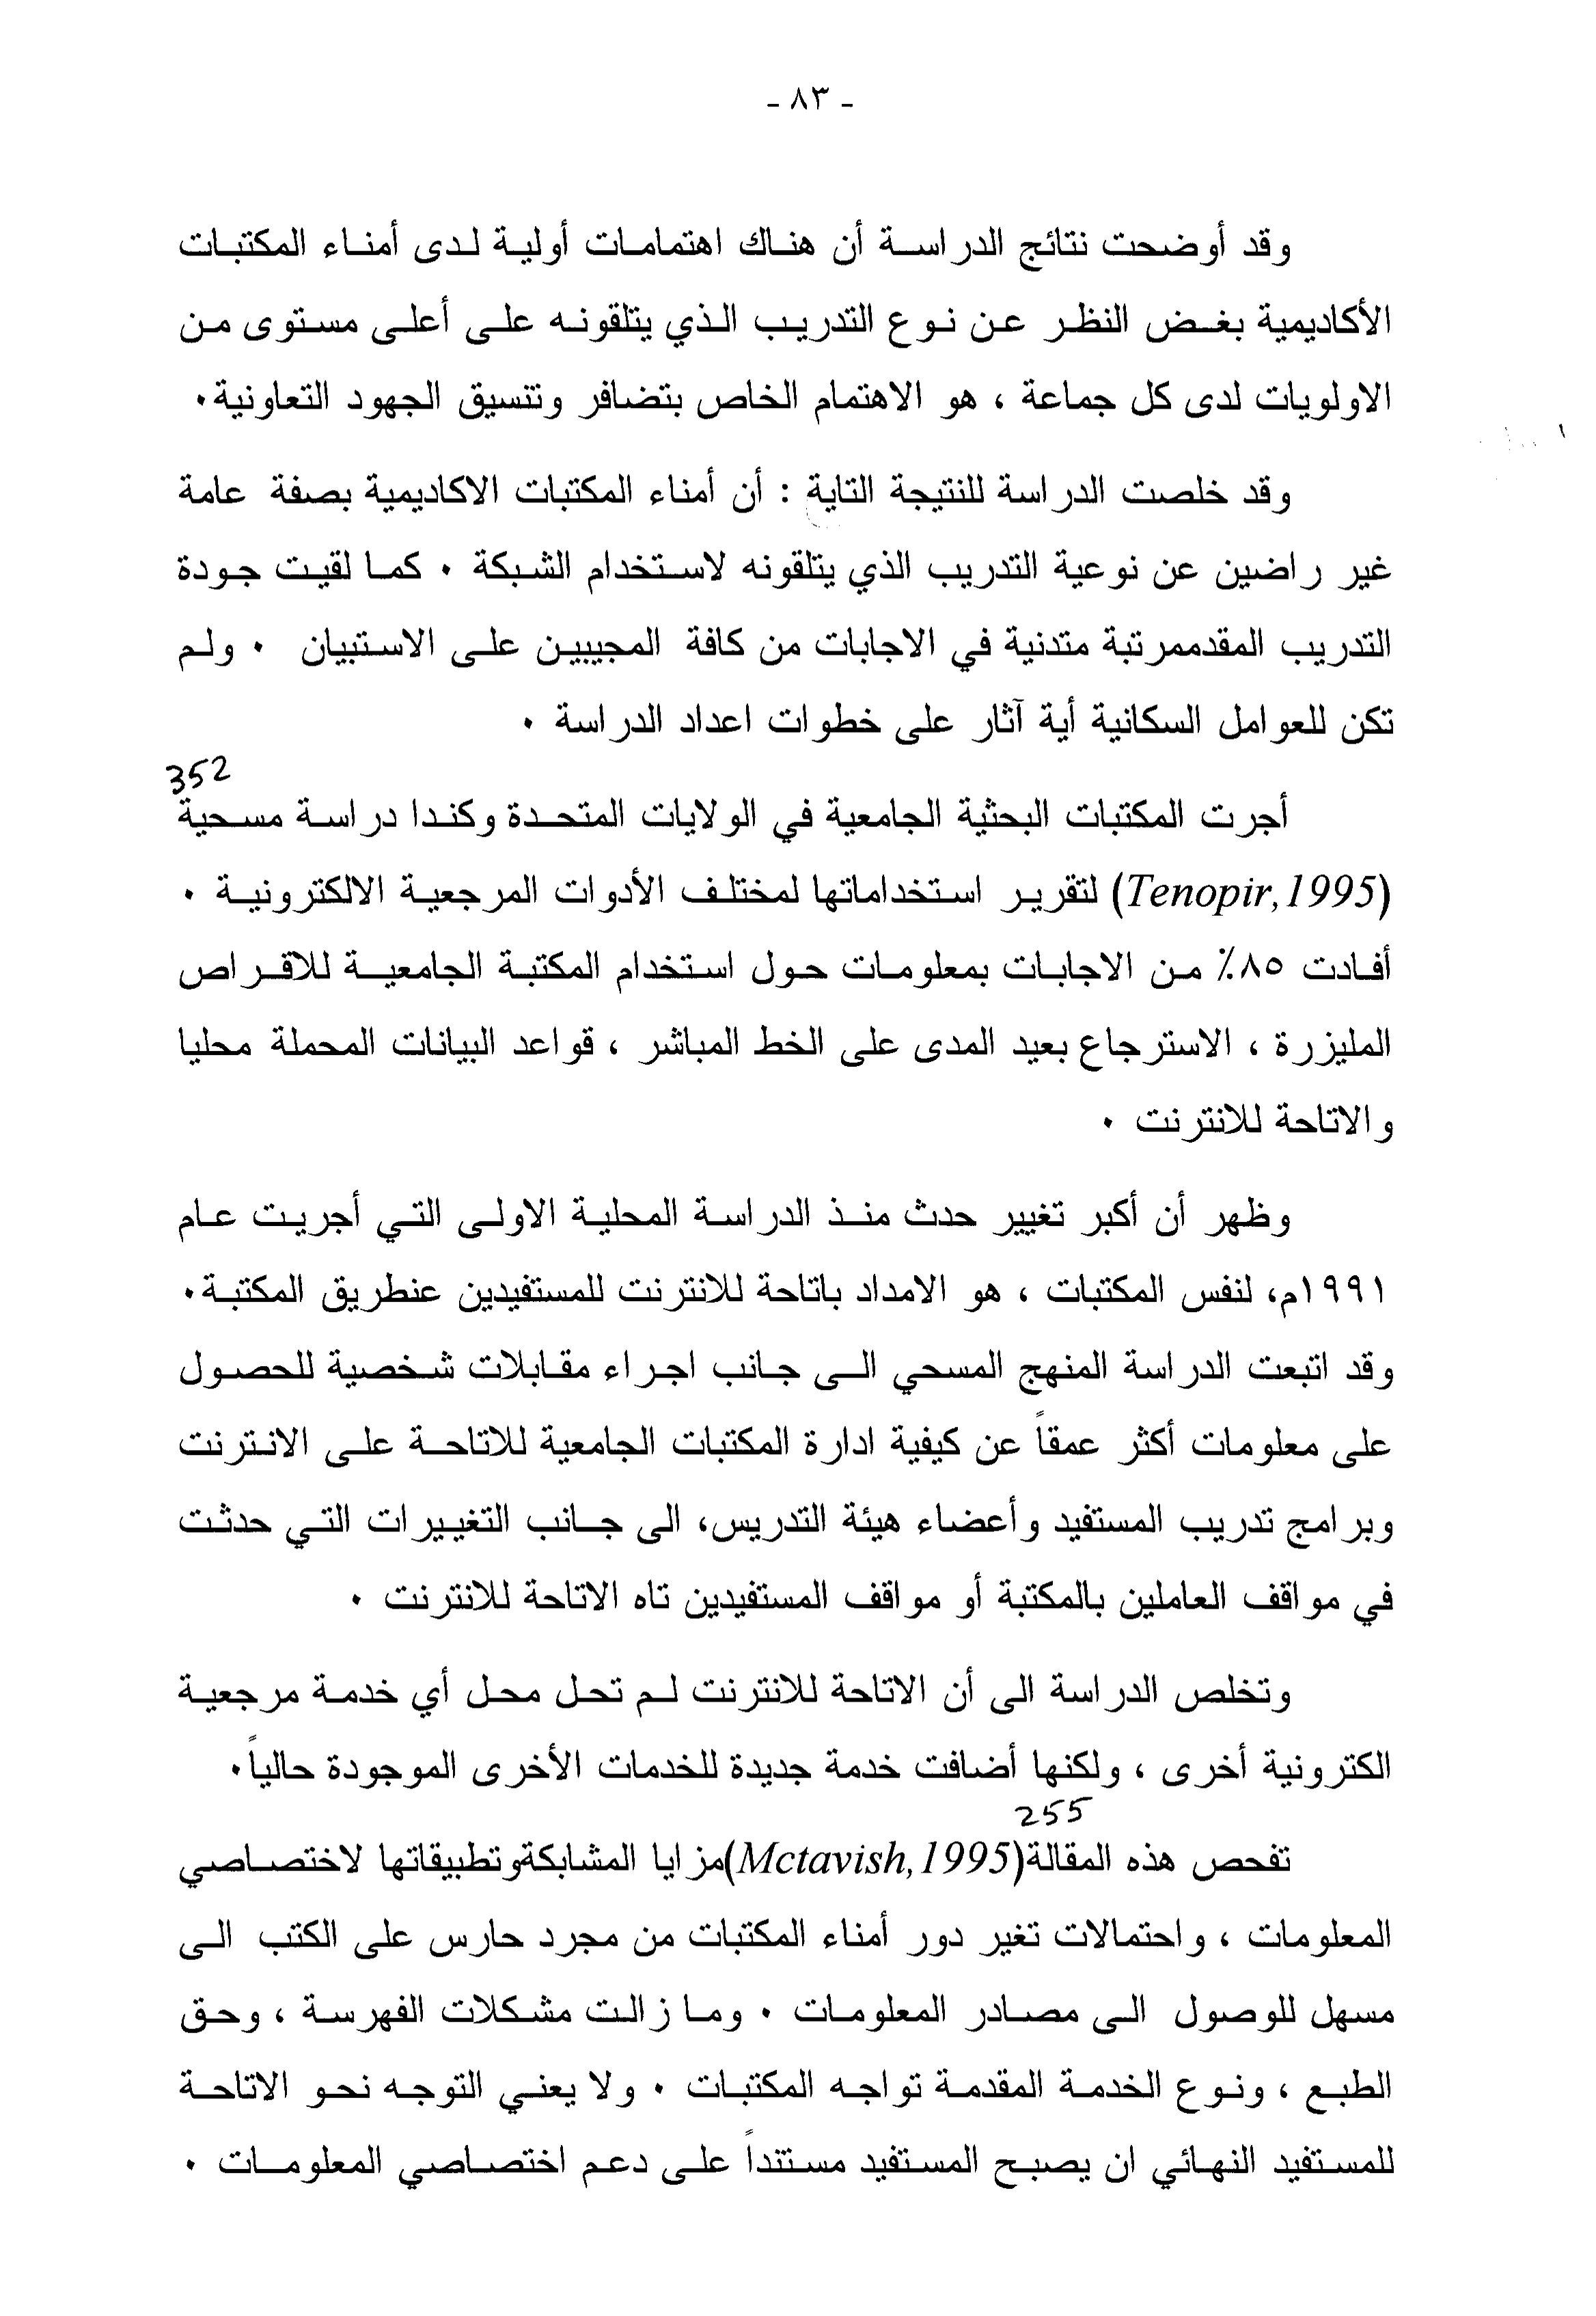 - ٨٣ -
وقد أوضحت نتائج الدراسة أن هناك اهتمامات أولية لدى أمناء المكتبات
الأكاديمية بغض النظر عن نوع التدريب الذي يتلقونه على أعلى مستوى من
الاولويات لدى كل جماعة ، هو الاهتمام الخاص بتضافر وتنسيق الجهود التعاونية٠
وقد خلصت الدراسة للنتيجة التاية : أن أمناء المكتبات الاكاديمية بصفة عامة
غير راضين عن نوعية التدريب الذي يتلقونه لاستخدام الشبكة ٠ كما لقيت جودة
التدريب المقدممرتبة متدنية في الاجابات من كافة المجيبين على الاستبيان ٠ ولم
تكن للعوامل السكانية أية آثار على خطوات اعداد الدراسة ٠
352
أجرت المكتبات البحثية الجامعية في الولايات المتحدة وكندا دراسة مسحية
(Tenopir,1995) لتقرير استخداماتها لمختلف الأدوات المرجعية الالكترونية ٠
أفادت ٨٥٪ من الاجابات بمعلومات حول استخدام المكتبة الجامعية للاقراص
المليزرة ، الاسترجاع بعيد المدى على الخط المباشر ، قواعد البيانات المحملة محليا
والاتاحة للانترنت ٠
وظهر أن أكبر تغيير حدث منذ الدراسة المحلية الاولى التي أجريت عام
١٩٩١م، لنفس المكتبات ، هو الامداد باتاحة للانترنت للمستفيدين عنطريق المكتبة٠
وقد اتبعت الدراسة المنهج المسحي الى جانب اجراء مقابلات شخصية للحصول
على معلومات أكثر عمقاً عن كيفية ادارة المكتبات الجامعية للاتاحة على الانترنت
وبرامج تدريب المستفيد وأعضاء هيئة التدريس، الى جانب التغييرات التي حدثت
في مواقف العاملين بالمكتبة أو مواقف المستفيدين تاه الاتاحة للانترنت ٠
وتخلص الدراسة الى أن الاتاحة للانترنت لم تحل محل أي خدمة مرجعية
الكترونية أخرى ، ولكنها أضافت خدمة جديدة للخدمات الأخرى الموجودة حالياً٠
255
تفحص هذه المقالة(Mctavish,1995)مزايا المشابكةوتطبيقاتها لاختصاصي
المعلومات ، واحتمالات تغير دور أمناء المكتبات من مجرد حارس على الكتب الى
مسهل للوصول الى مصادر المعلومات ٠ وما زالت مشكلات الفهرسة ، وحق
الطبع ، ونوع الخدمة المقدمة تواجه المكتبات ٠ ولا يعني التوجه نحو الاتاحة
للمستفيد النهائي ان يصبح المستفيد مستنداً على دعم اختصاصي المعلومات ٠